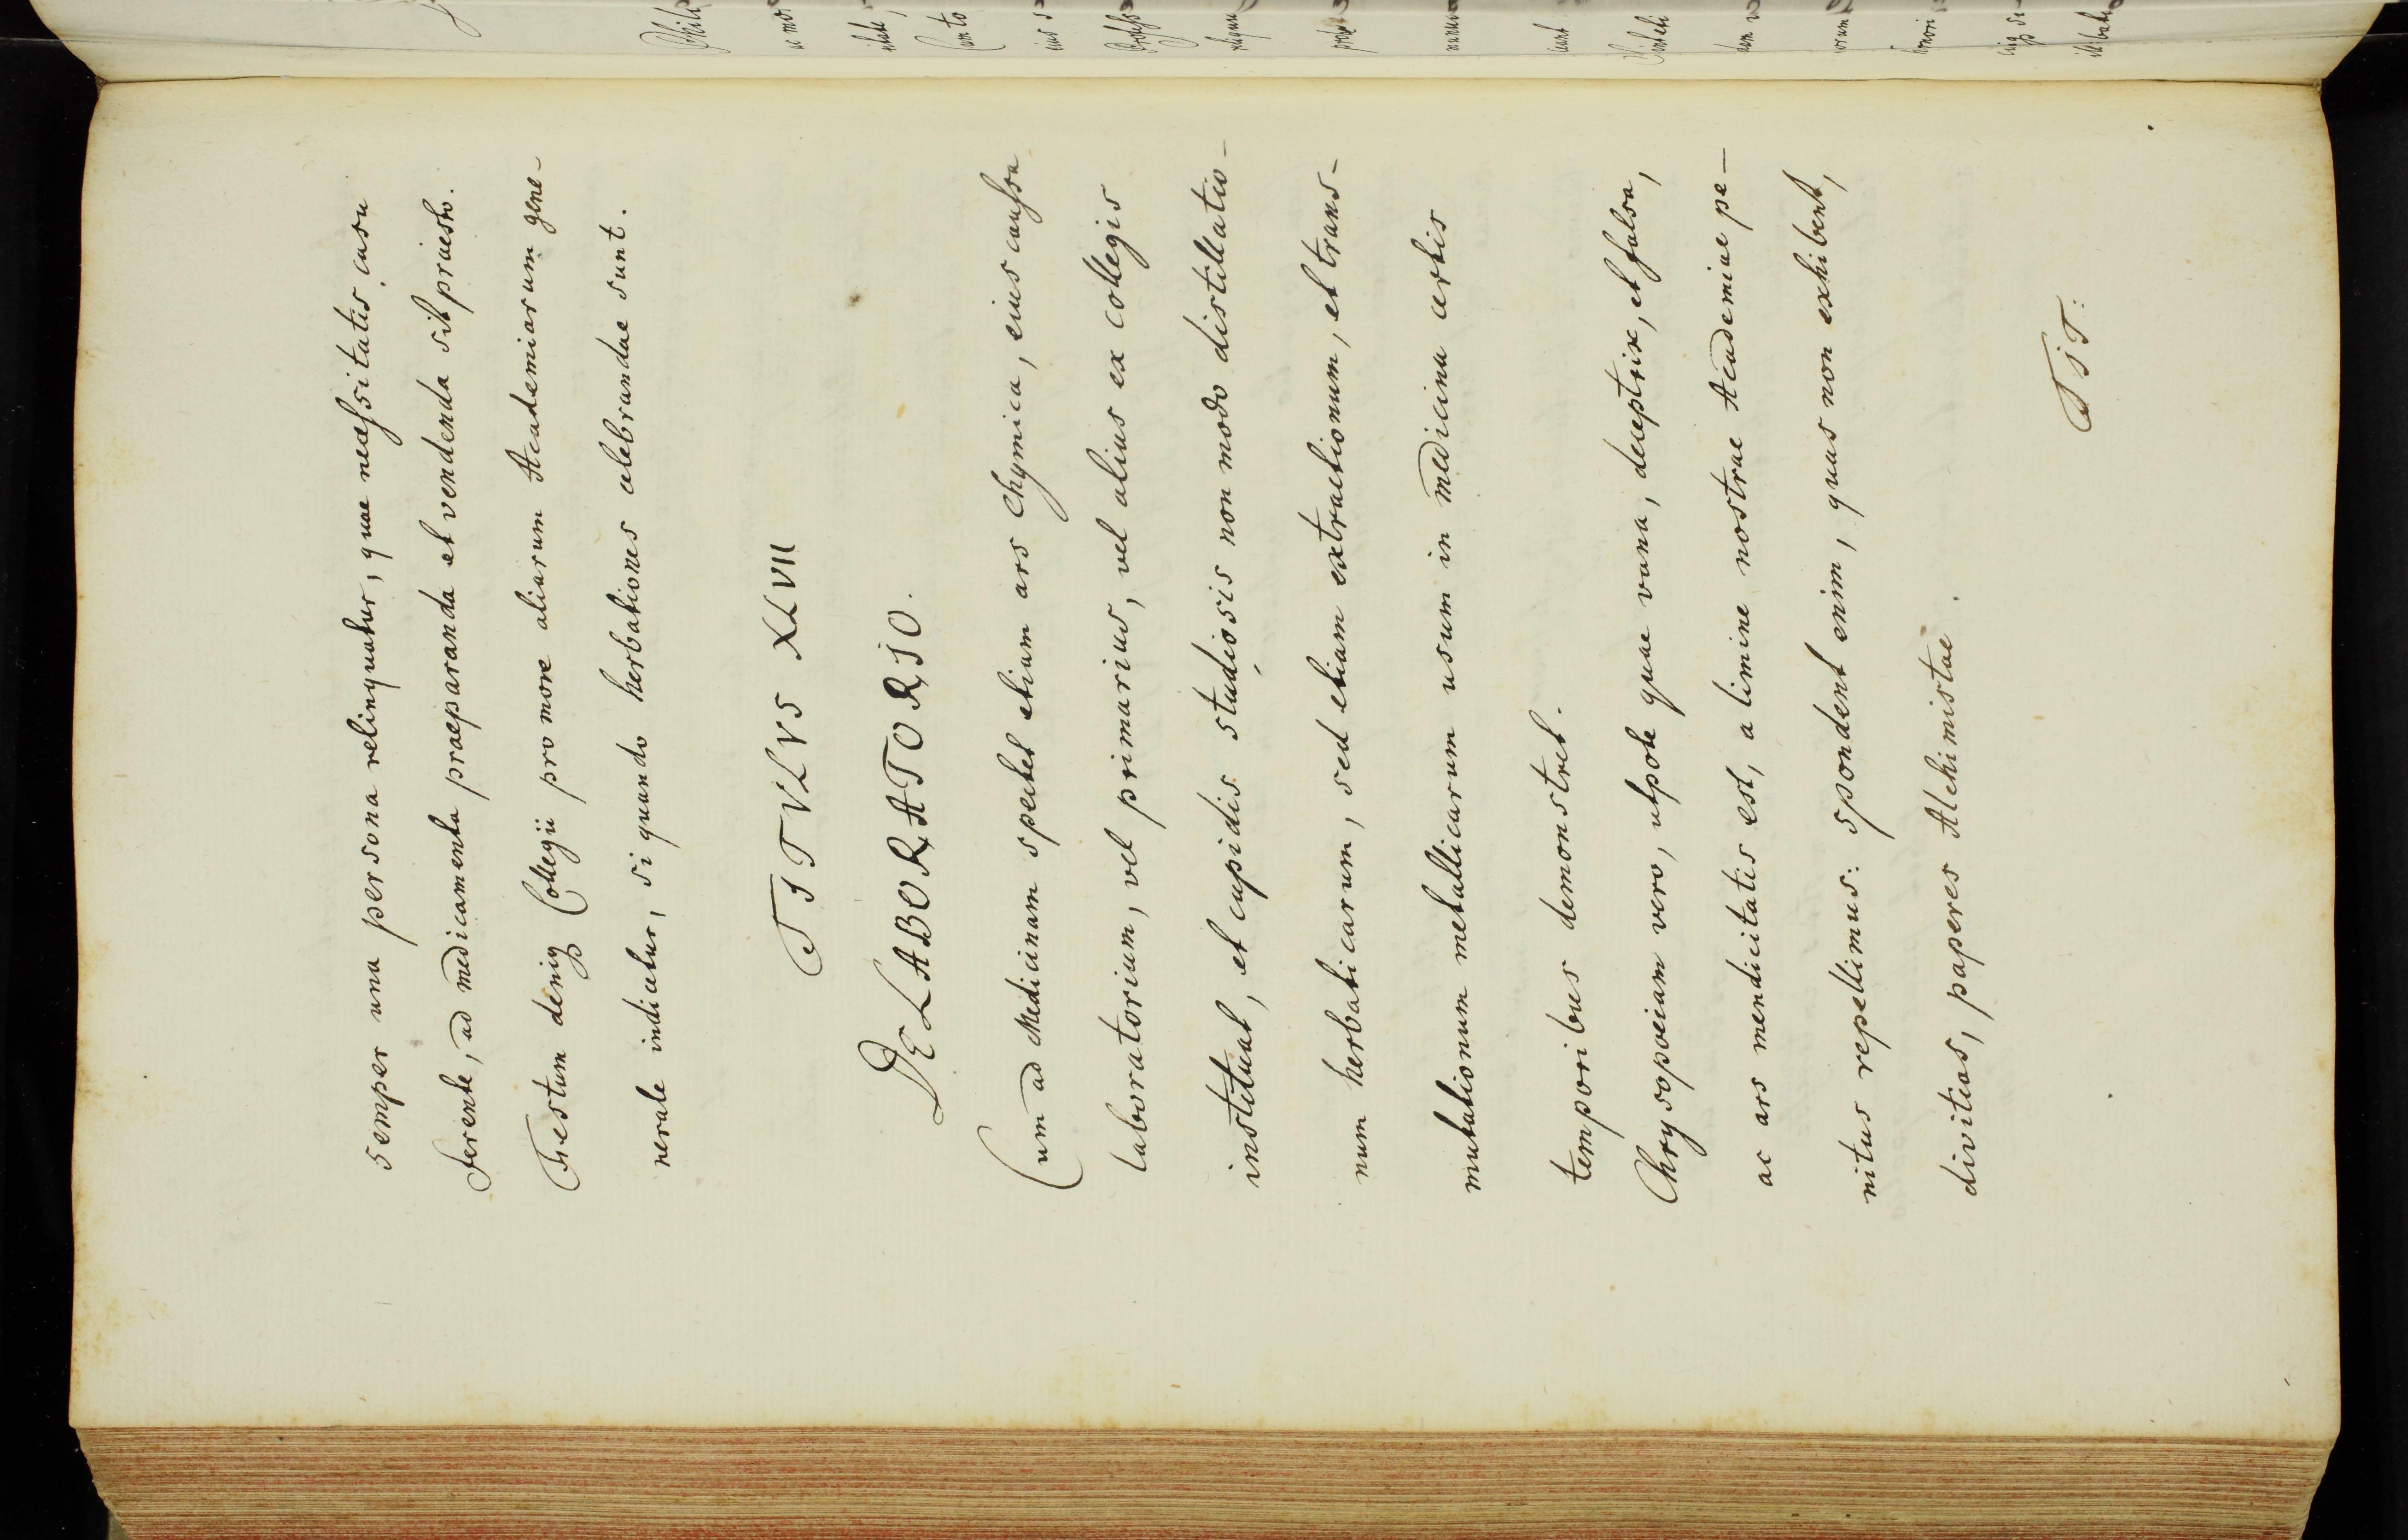 semper una persona relinquatur, quae necessitatis casu
ferente, ad medicamenta praeparanda et vendenda sit praesto.
Festum deniq Collegii pro more aliarum Academiarum gene-
nerale indicatur, si quando herbationes celebrandae sunt.
TITVLVS XLVII
DE LABORATORIO.
Cum ad Medicinam spectet etiam ars Chymica, eius caussa
laboratorium, vel primarius, vel alius ex collegis
instituat, et cupidis studiosis non modo distillatio-
num herbaticarum, sed etiam extractionum, et trans-
mutationum metallicarum usum in medicina certis
temporibus demonstret.
Chrysopoeiam vero, utpote quae vana, deceptrix, et falsa,
ac ars mendicitatis est, a limine nostrae Academiae pe-
nitus repellimus: spondent enim, quas non exhibent,
divitias, paperes Alchimistae.
TIT: